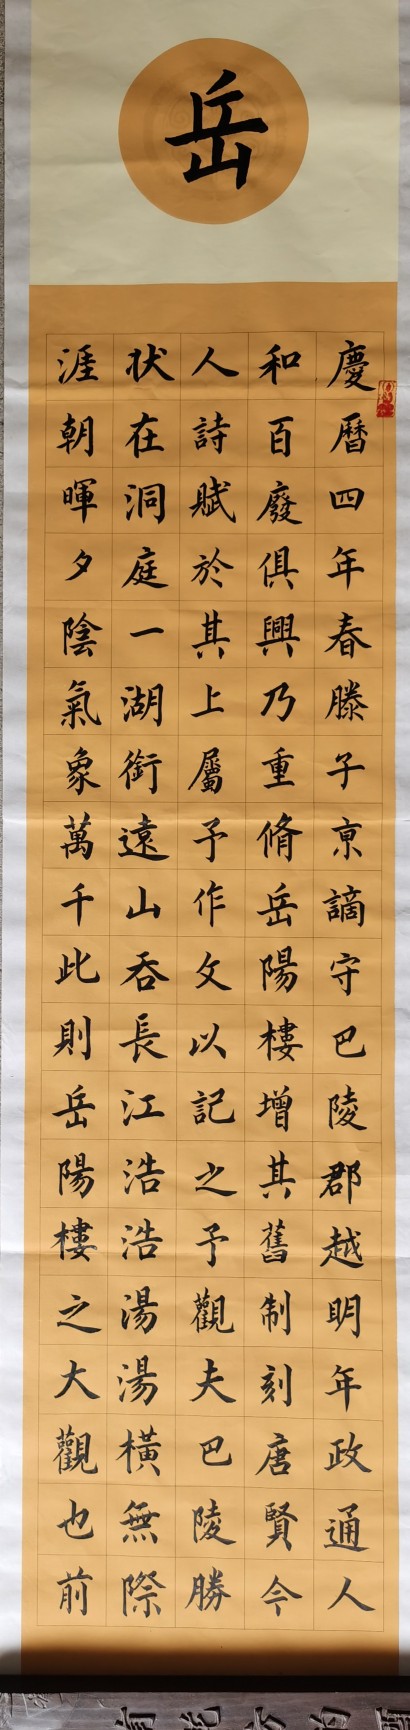 岳
慶曆四年春滕子京謫守巴陵郡越明年政通人
和百廢俱興乃重脩岳陽樓增其舊制刻唐賢今
人詩賦於其上屬予作文以記之予觀夫巴陵勝
狀在洞庭一湖銜遠山吞長江浩浩湯湯橫無際
涯朝暉夕陰氣象萬千此則岳陽樓之大觀也前